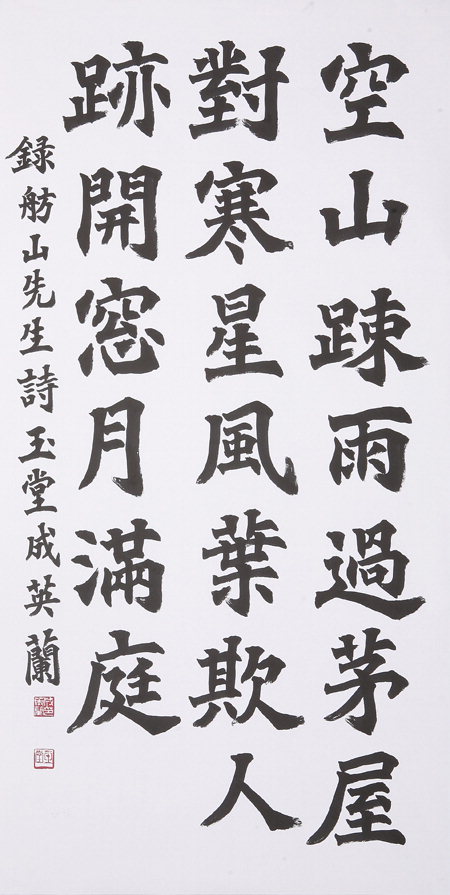 空山踈雨過茅屋
對寒星風葉欺人
跡開窓月滿庭
録舫山先生詩玉堂成英蘭